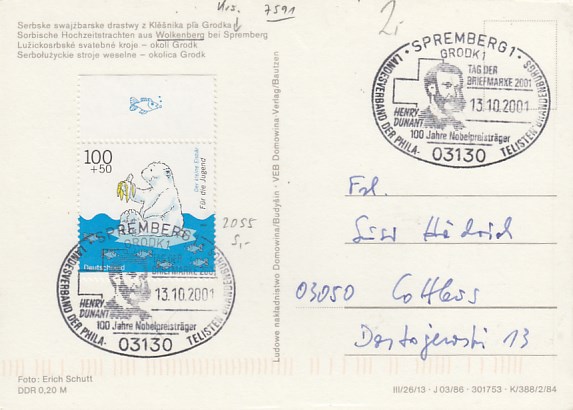 Urs. 7591
2,-
Serbske swajźbarske drastwy z Klěśnika pla Grodka
Sorbische Hochzeitstrachten aus Wolkenberg bei Spremberg
Łužickosrbské svatebné kroje – okolí Grodk
Serbołużyckie stroje weselne – okolica Grodk
100
+50
Der kleine Eisbär
Für die Jugend
Deutschland
2055
5,-
SPREMBERG 1
GRODK 1
TAG DER
BRIEFMARKE 2001
13.10.2001
HENRY
DUNANT
100 Jahre Nobelpreisträger
03130
LANDESVERBAND DER PHILA-
TELISTEN BRANDENBURGS
SPREMBERG 1
GRODK 1
BRIEFMARKE 2001
13.10.2001
HENRY
DUNANT
100 Jahre Nobelpreisträger
03130
LANDESVERBAND DER PHILA-
TELISTEN BRANDENBURGS
Ludowe nakładnistwo Domowina/Budyšin · VEB Domowina-Verlag/Bautzen
Frl.
03050 Cottbus
Dostojewski 13
Foto: Erich Schutt
DDR 0,20 M
III/26/13 · J 03/86 · 301753 · K/388/2/84